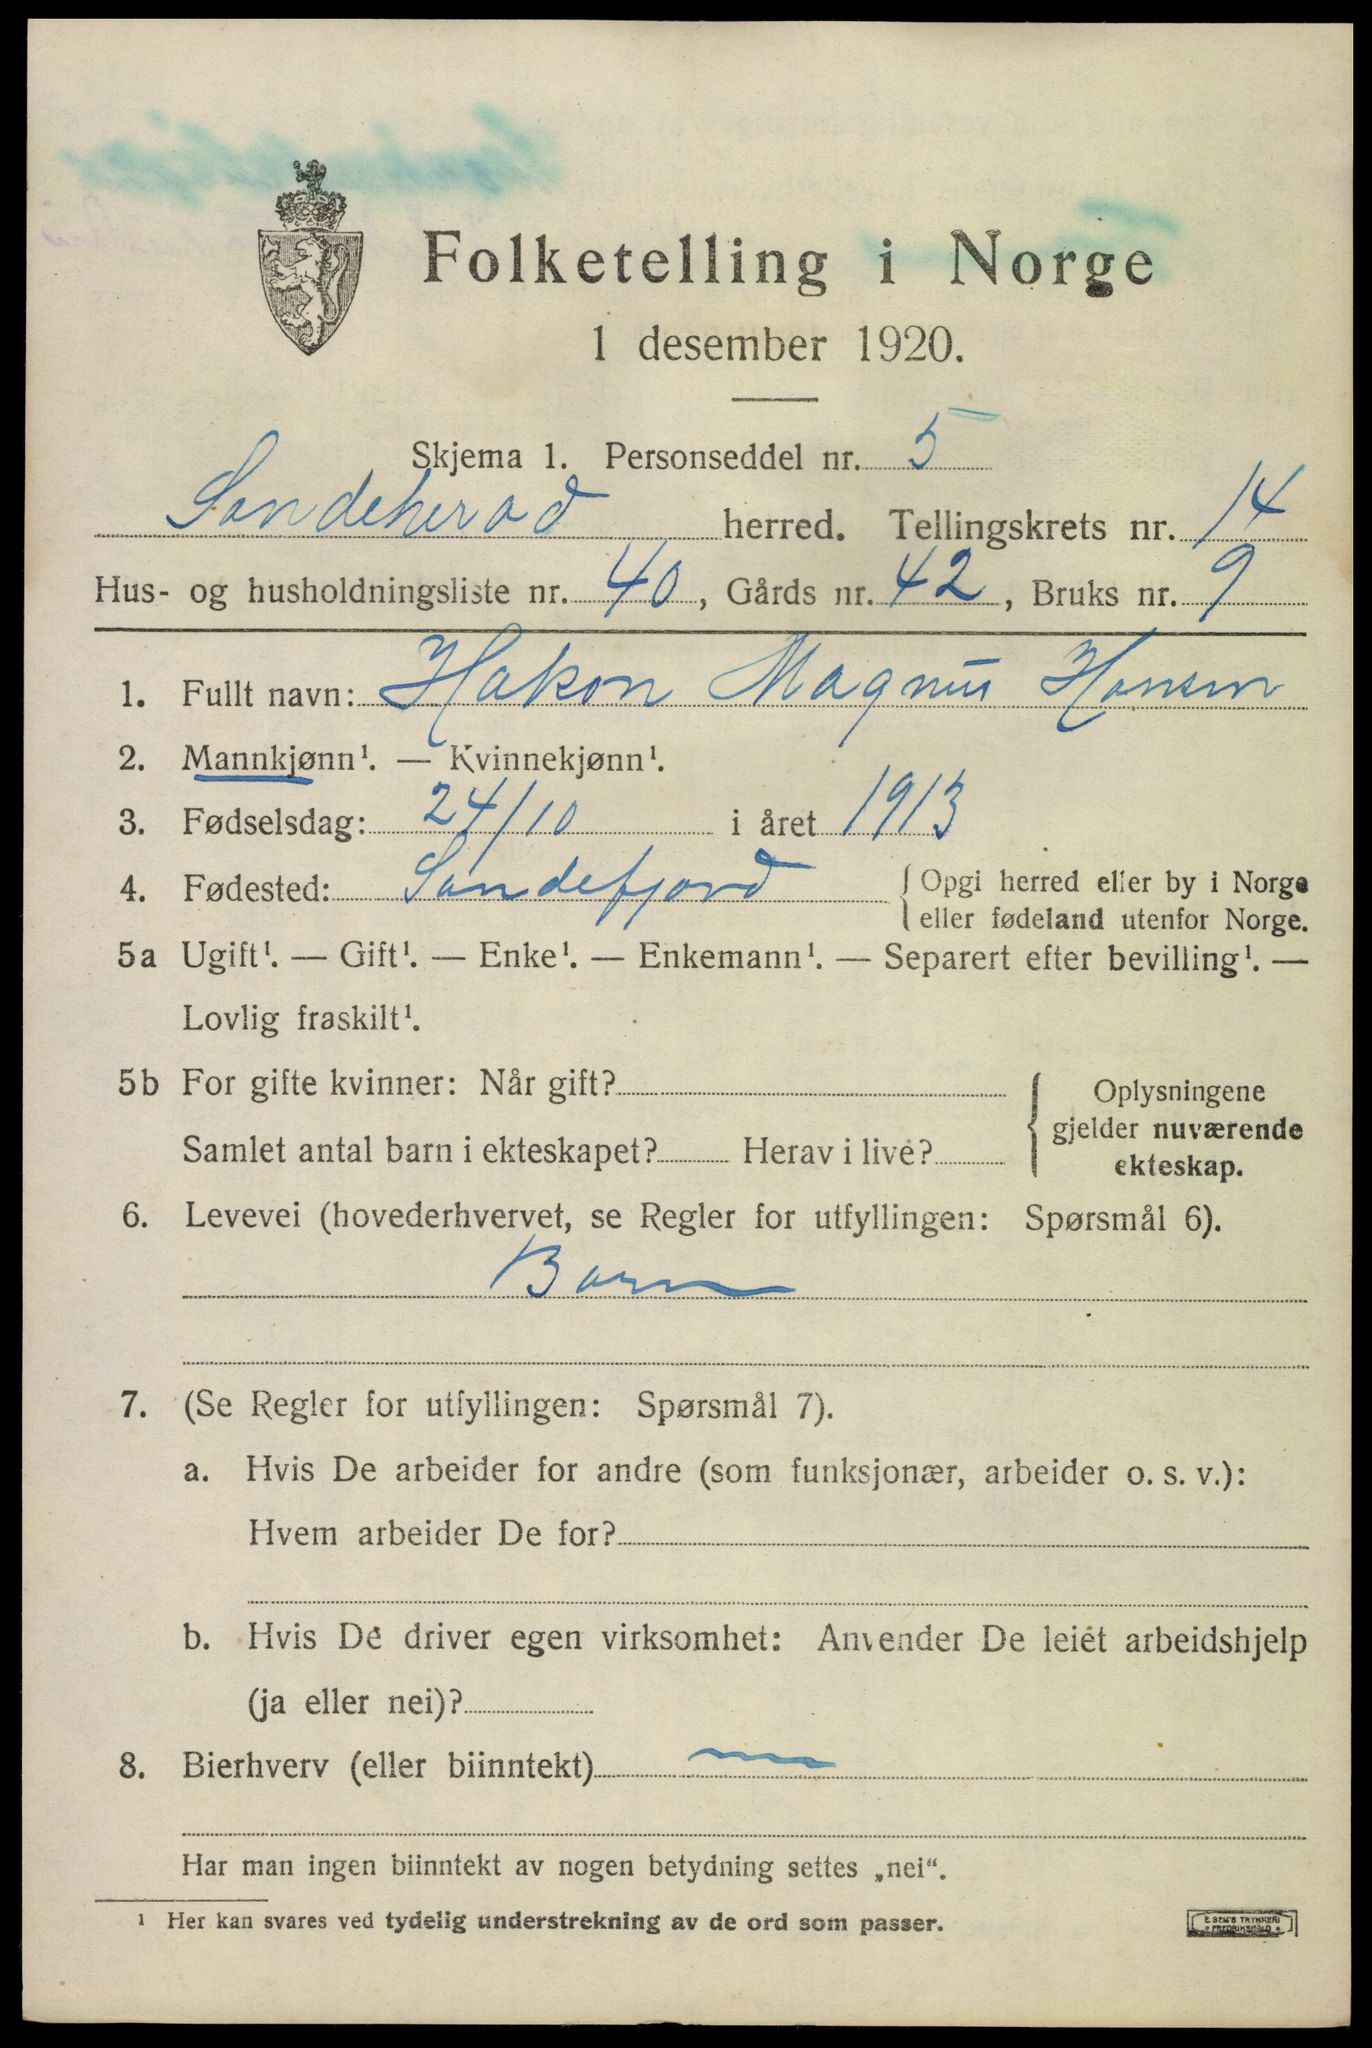 Folketelling i Norge
1 desember 1920.
Skjema 1. Personseddel nr. 5
Sandeherad herred. Tellingskrets nr. 14
Hus- og husholdningsliste nr. 40, Gårds nr. 42, Bruks nr. 9
1. Fullt navn: Hakon Magnus Hansen
2. Mannkjønn¹. — Kvinnekjønn¹.
3. Fødselsdag: 24/10 i året 1913
4. Fødested: Sandefjord { Opgi herred eller by i Norge
eller fødeland utenfor Norge.
5a Ugift¹. — Gift¹. — Enke¹. — Enkemann¹. — Separert efter bevilling¹. —
Lovlig fraskilt¹.
5b For gifte kvinner: Når gift?
Samlet antal barn i ekteskapet? Herav i live?
Oplysningene
gjelder nuværende
ekteskap.
6. Levevei (hovederhvervet, se Regler for utfyllingen: Spørsmål 6).
Barn
7. (Se Regler for utfyllingen: Spørsmål 7).
a. Hvis De arbeider for andre (som funksjonær, arbeider o. s. v.):
Hvem arbeider De for?
b. Hvis De driver egen virksomhet: Anvender De leiet arbeidshjelp
(ja eller nei)?
8. Bierhverv (eller biinntekt)
Har man ingen biinntekt av nogen betydning settes „nei“.
¹ Her kan svares ved tydelig understrekning av de ord som passer.
E. SEM'S TRYKKERI
FREDRIKSHALD